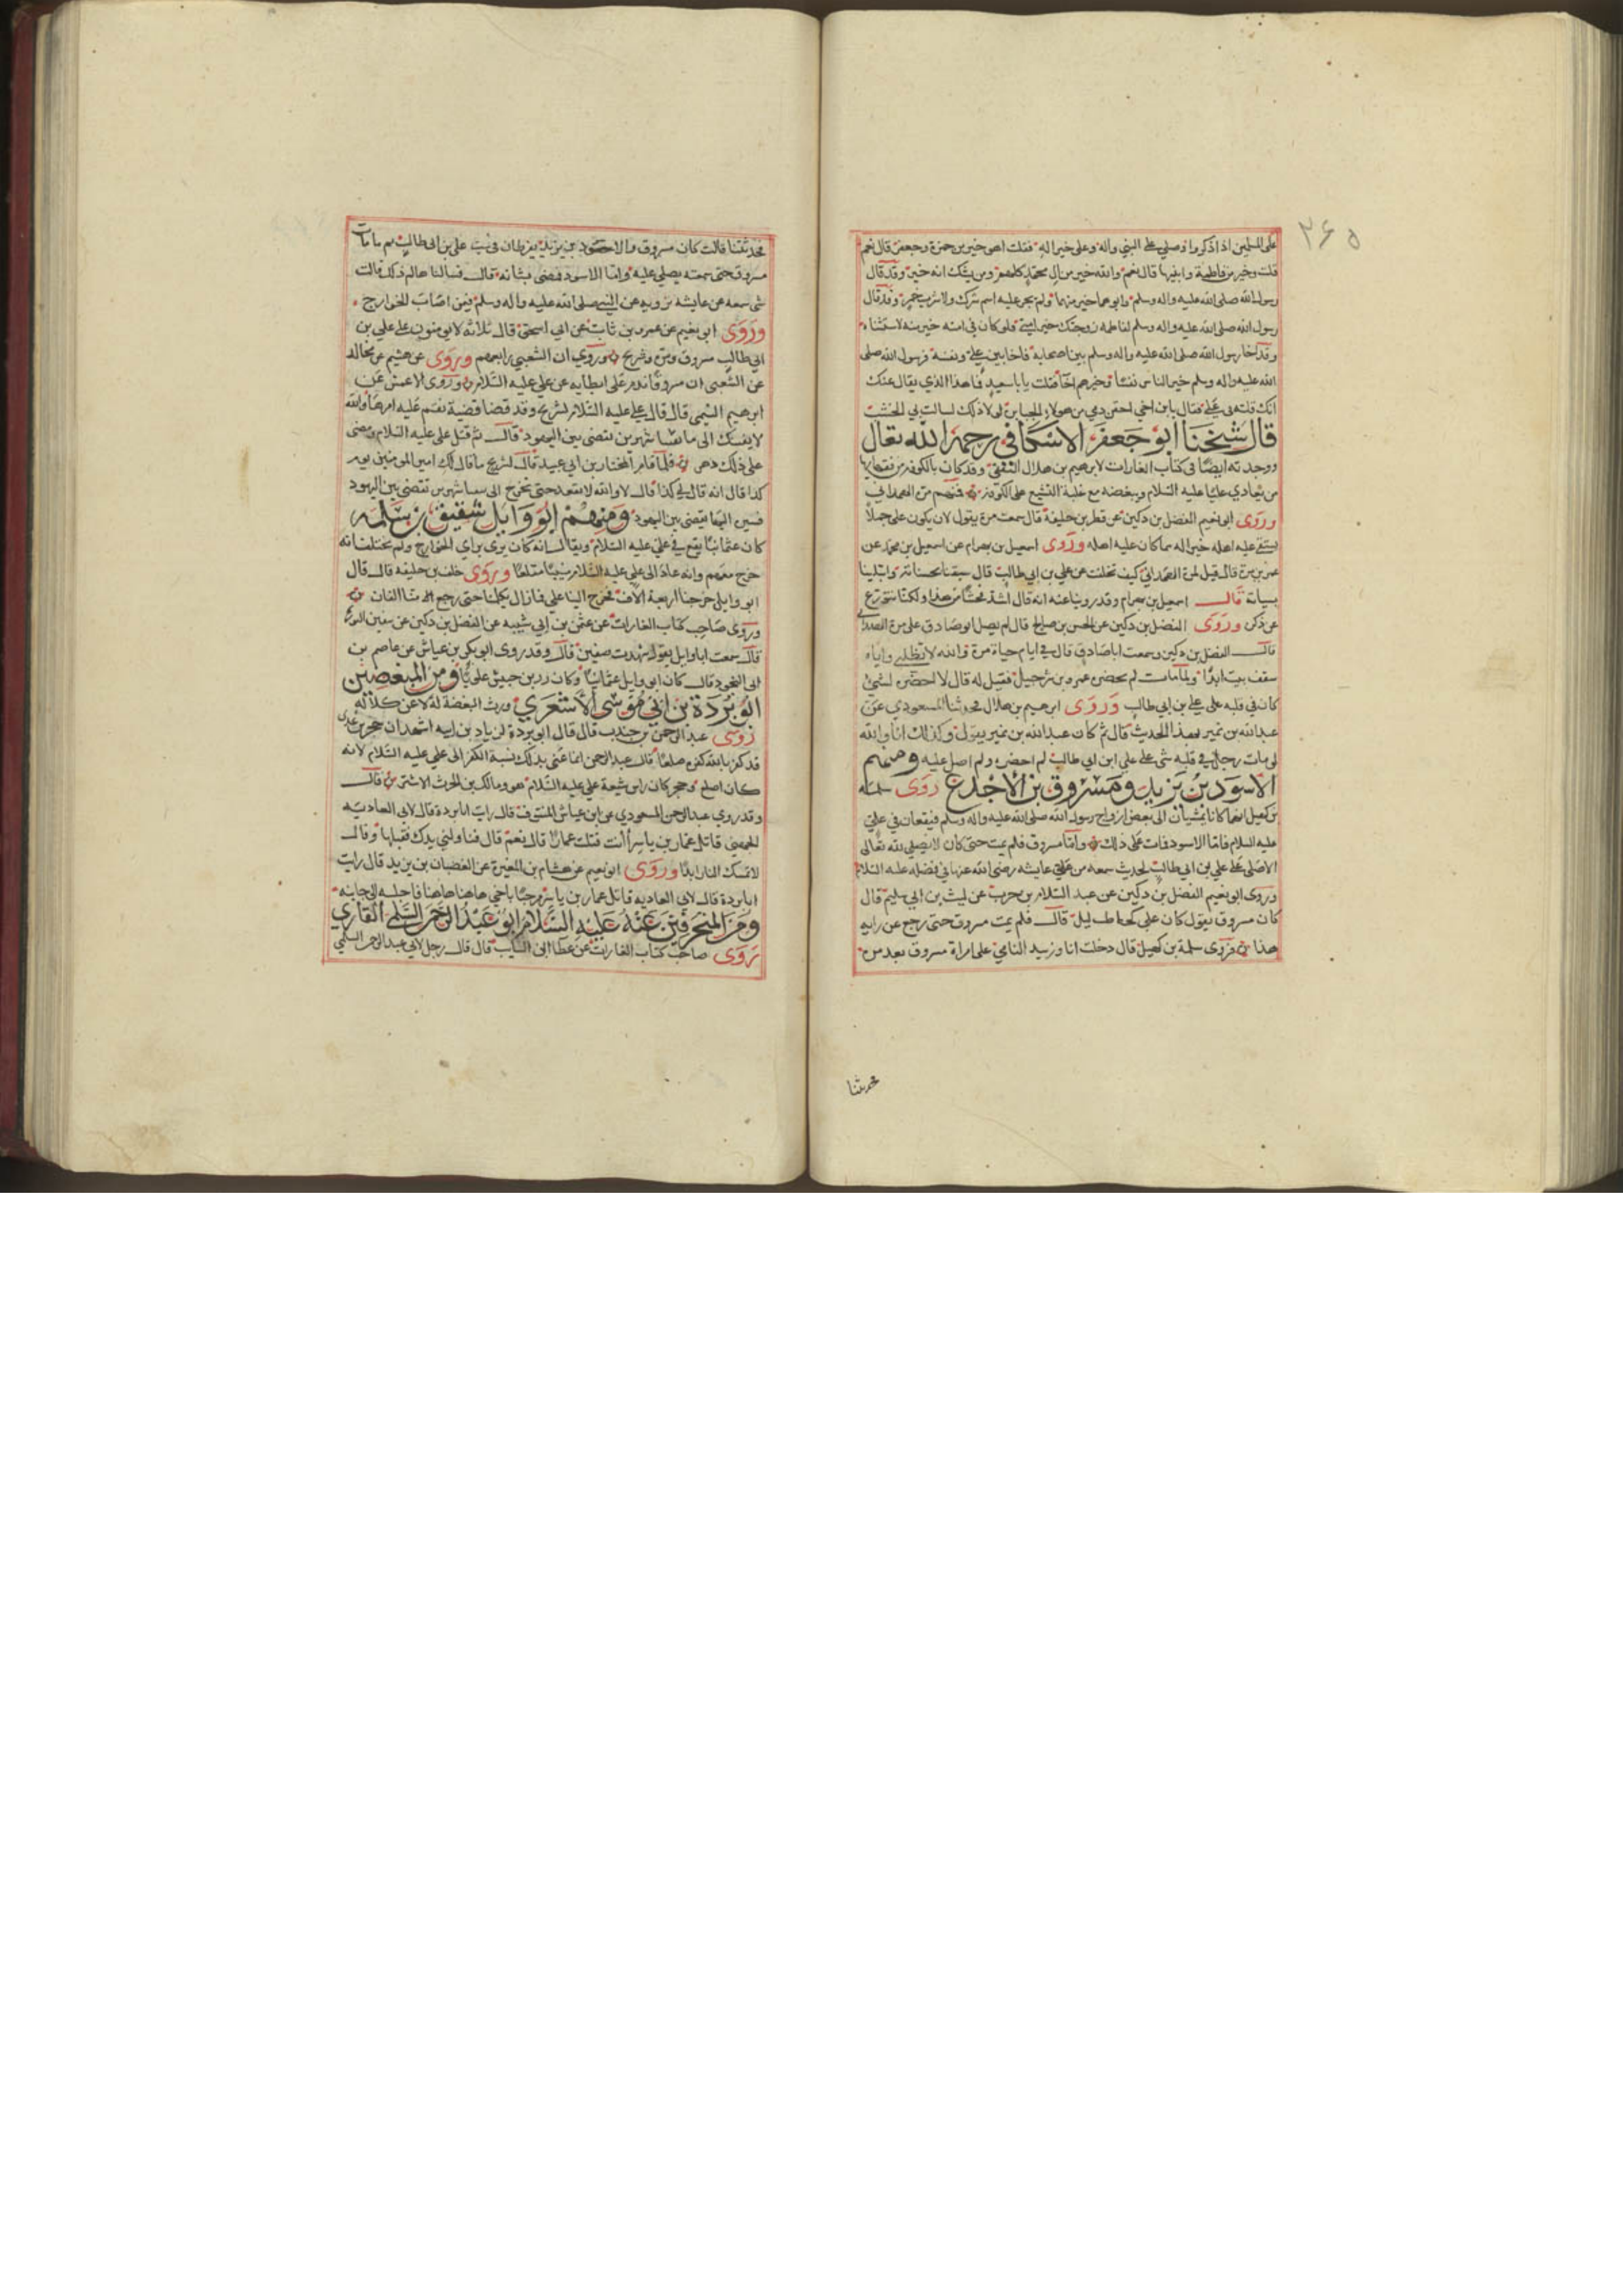 ٣٦٥
على المسلمين اذا ذكروا وصلي على النبي واله وعلى خير اله فقلت اهو خير من حمزة وجعفر قال نعم
قلت وخير من فاطمة وابنيها قال نعم والله خير من ال محمد كلهم ومن يشك انه خير وقد قال
رسول الله صلى الله عليه واله وسلم وابوهما خير منهما ولم يجر عليه اسم شرك ولا شرب خمر وقد قال
رسول الله صلى الله عليه واله وسلم لفاطمة زوجتك خير امتي فلو كان في امته خير منه لاستثناه
وقد اخا رسول الله صلى الله عليه واله وسلم بين اصحابه فاخا بين علي ونفسه فرسول الله صلى
الله عليه واله وسلم خير الناس نفسا وخيرهم اخا فقلت يا با سعيد فما هذا الذي يقال عنك
انك قلته في علي فقال يا بن اخي احقن دمي من هولاء الجبابرة لولا ذلك لسالت بي الخشب
قال شيخنا ابو جعفر الاسكافي رحمه الله تعالى
ووجدته ايضا في كتاب الغارات لابرهيم بن هلال الثقفي وقد كان بالكوفة من فقهايها
من يعادي عليا عليه السلام ويبغضه مع غلبة التشيع على الكوفة فمنهم مرة الهمداني
وروى ابو نعيم الفضل بن دكين عن فطر بن خليفة قال سمعت مرة يقول لان يكون علي جملا
يستقي عليه اهله خير له مما كان عليه اهله وروى اسمعيل بن بهرام عن اسمعيل بن محمد عن
عمرو بن مرة قال قيل لمرة الهمداني كيف تخلفت عن علي بن ابي طالب قال سبقنا بحسناته وابتلينا
بسياته قال اسمعيل بن بهرام وقد روينا عنه انه قال اشد فحشا من هذا ولكنا نتورع
عن ذكره وروى الفضل بن دكين عن الحسن بن صالح قال لم يصل ابو صادق على مرة الهمداني
قال الفضل بن دكين وسمعت ابا صادق قال في ايام حياة مرة والله لا يظلني واياه
سقف بيت ابدا ولما مات لم يحضره عمرو بن شرحبيل فقيل له قال لا احضره لشي
كان في قلبه على علي بن ابي طالب وروى ابرهيم بن هلال فحدثنا المسعودي عن
عبدالله بن نمير بهذا الحديث قال ثم كان عبدالله بن نمير يقول وكذلك انا والله
لو مات رجل في قلبه شي على علي ابن ابي طالب لم احضره ولم اصل عليه ومنهم
الاسود بن يزيد ومسروق بن الاجدع روى سلمة
بن كهيل انهما كانا يمشيان الى بعض ازواج رسول الله صلى الله عليه واله وسلم فيقعان في علي
عليه السلام فاما الاسود فمات على ذلك واما مسروق فلم يمت حتى كان لا يصلي لله تعالى
الا صلى على علي بن ابي طالب لحديث سمعه من عايشه رضي الله عنها في فضله عليه السلام
وروى ابو نعيم الفضل بن دكين عن عبد السلام بن حرب عن ليث بن ابي سليم قال
كان مسروق يقول كان علي كحاطب ليل قال فلم يمت مسروق حتى رجع عن رايه
هذا وروى سلمة بن كهيل قال دخلت انا وزبيد اليامي على امراة مسروق بعد موته
فحدثنا
فحدثتنا قالت كان مسروق والاسود بن يزيد يفرطان في سب علي بن ابي طالب ثم ما مات
مسروق حتى سمعته يصلي عليه واما الاسود فمضى بشانه قال فسالناها لم ذلك قالت
شي سمعه من عايشه ترويه عن النبي صلى الله عليه واله وسلم فيمن اصاب الخوارج
وروى ابو نعيم عن عمرو بن ثابت عن ابي اسحق قال ثلاثة لا يومنون على علي بن
ابي طالب مسروق ومرة وشريح وروي ان الشعبي رابعهم وروى عن هيثم عن مجالد
عن الشعبي ان مسروقا ندم على ابطايه عن علي عليه السلام وروى الاعمش عن
ابرهيم التيمي قال قال علي عليه السلام لشريح وقد قضا قضية نقم عليه امرها والله
لانفينك الى بانقيا شهرين تقضي بين اليهود قال ثم قتل علي عليه السلام ومضى
على ذلك دهر فلما قام المختار بن ابي عبيد قال لشريح ما قال لك امير المومنين يوم
كذا قال انه قال لي كذا قال لا والله لا تقعد حتى تخرج الى بانقيا شهرين تقضي بين اليهود
فسيره اليها يقضي بين اليهود ومنهم ابو وايل شقيق بن سلمه
كان عثمانيا يقع في علي عليه السلام ويقال انه كان يرى براي الخوارج ولم يختلف انه
خرج معهم وانه عاد الى علي عليه السلام منيبا مقلعا وروى خلف بن خليفه قال قال
ابو وايل خرجنا اربعة الاف فخرج الينا علي فما زال يكلمنا حتى رجع منا الفان
وروى صاحب كتاب الغارات عن عثمن بن ابي شيبه عن الفضل بن دكين عن سفين الثوري
قال سمعت ابا وايل يقول شهدت صفين قال وقد روى ابو بكر بن عياش عن عاصم بن
ابي النجود قال كان ابو وايل عثمانيا وكان زر بن حبيش علويا ومن المبغضين
ابو بردة بن ابي موسى الاشعري ورث البغضة له لا عن كلاله
روى عبد الرحمن بن جندب قال قال ابو بردة لزياد بن ابيه اشهد ان حجر بن عدى
قد كفر بالله كفرة صلعا قال عبد الرحمن انما عنى بذلك نسبة الكفر الى علي عليه السلام لانه
كان اصلع وحجر كان راس شيعة علي عليه السلام هو ومالك بن الحرث الاشتر قال
وقد روي عبد الرحمن المسعودي عن ابن عياش المنتوف قال رايت ابا بردة قال لابي العاديه
الجهني قاتل عمار بن ياسر اانت قتلت عمارا قال نعم قال فناولني يدك فقبلها وقال
لا تمسك النار ابدا وروى ابو نعيم عن هشام بن المغيرة عن الغضبان بن يزيد قال رايت
ابا بردة قال لابي العاديه قاتل عمار بن ياسر مرحبا باخي هاهنا هاهنا فاجلسه الى جانبه
ومن المنحرفين عنه عليه السلام ابو عبد الرحمن السلمي القاري
روى صاحب كتاب الغارات عن عطا ابن السايب قال قال رجل لابي عبد الرحمن السلمي